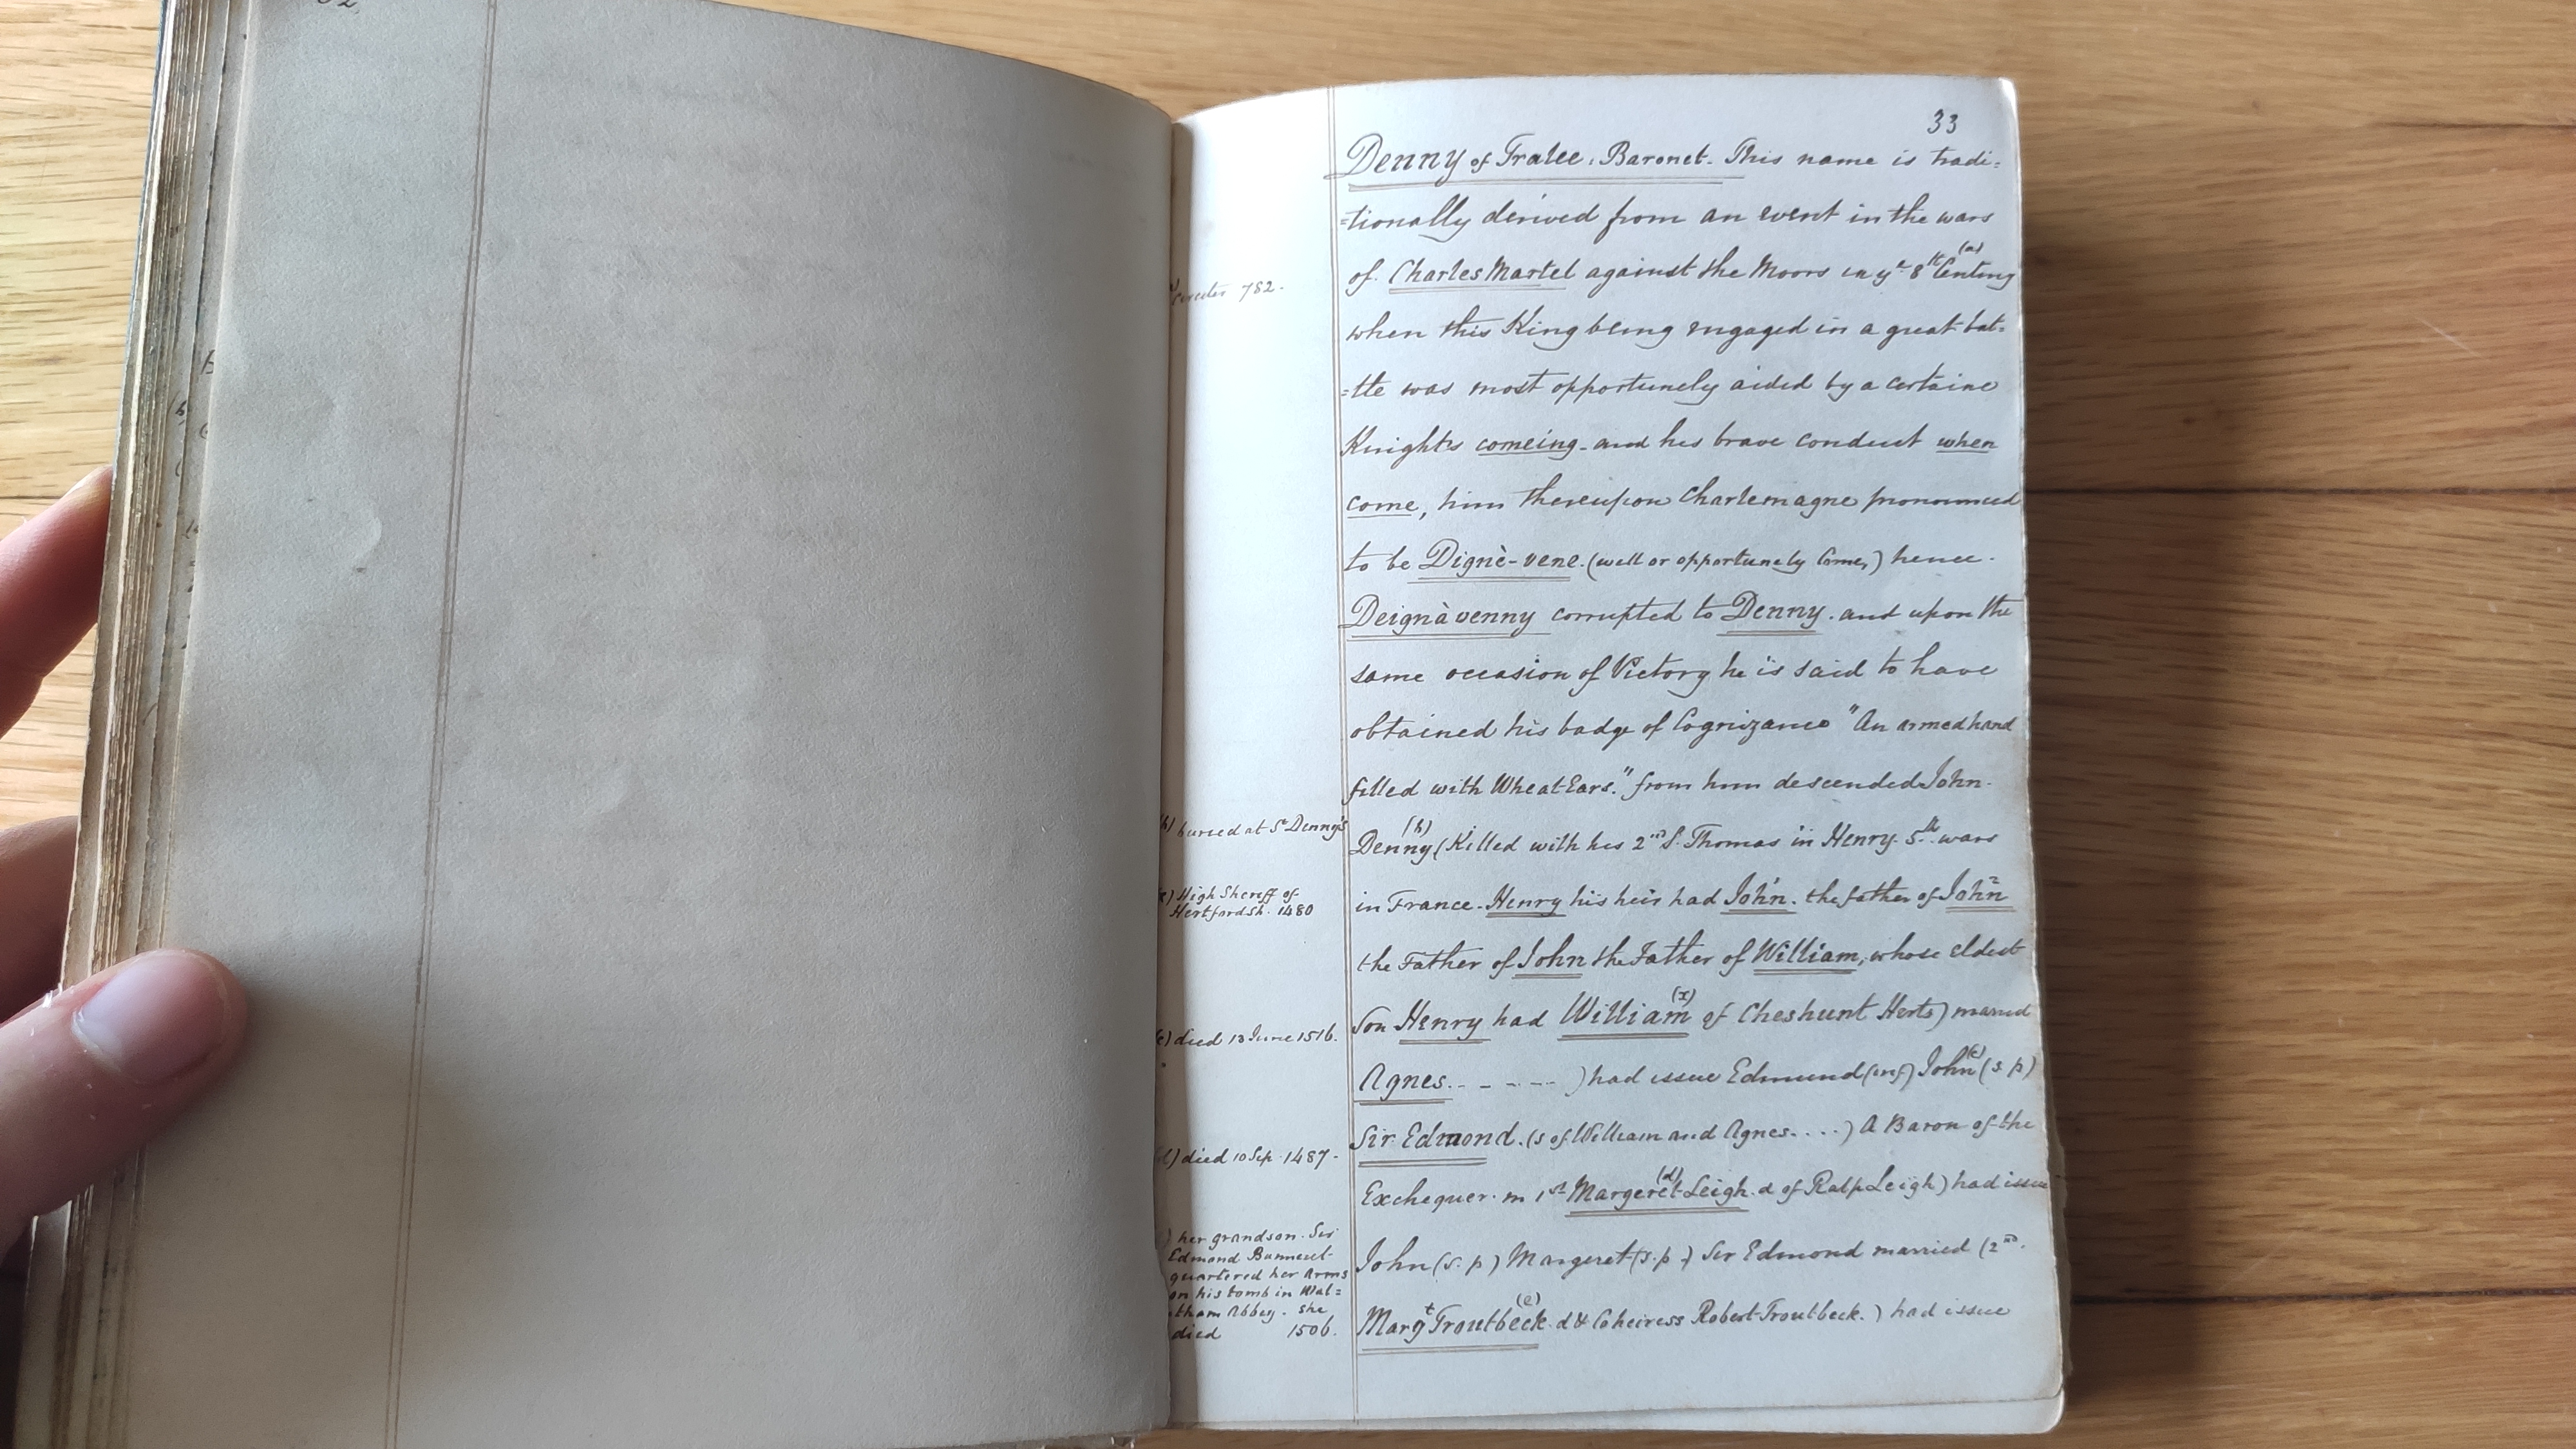 33
Denny of Tralee. Baronet. This name is tradi=
=tionally derived from an event in the wars
of Charles Martel against the Moors in yᵉ 8th (a) Century
circiter 782.
when this King being engaged in a great bat=
=tle was most opportunely aided by a certaine
Knights comeing - and his brave conduct when
come, him thereupon Charlemagne pronounced
to be Dignè-vene. (well or opportunely Come,) hence.
Deignàvenny corrupted to Denny. and upon the
same occasion of Victory he is said to have
obtained his badge of Cognizance "An armed hand
filled with Wheat Ears." from him descended John.
buried at St Denny's
Denny (b) (Killed with his 2nd S. Thomas in Henry. 5th wars
High Sheriff of
Hertfordsh. 1480
in France. Henry his heir had John. the father of John
the Father of John the Father of William, whose eldest
Son Henry had William (x) of Cheshunt Herts) married
died 13 June 1516.
Agnes. - - - - - ) had issue Edmund John (c) (s. p)
Sir Edmond. (s of William and Agnes. . . . .) A Baron of the
(d) died 10 Sep. 1487.
Exchequer. m 1st Margeret (d) Leigh. d of Ralp Leigh) had issue
her grandson. Sir
Edmond Banneret
quartered her Arms
on his tomb in Wal=
tham Abbey. she
died 1506.
John (s. p) Margeret (s. p.) Sir Edmond married (2nd.
Margt Troutbeck (e) d & Coheiress Robert Troutbeck.) had issue